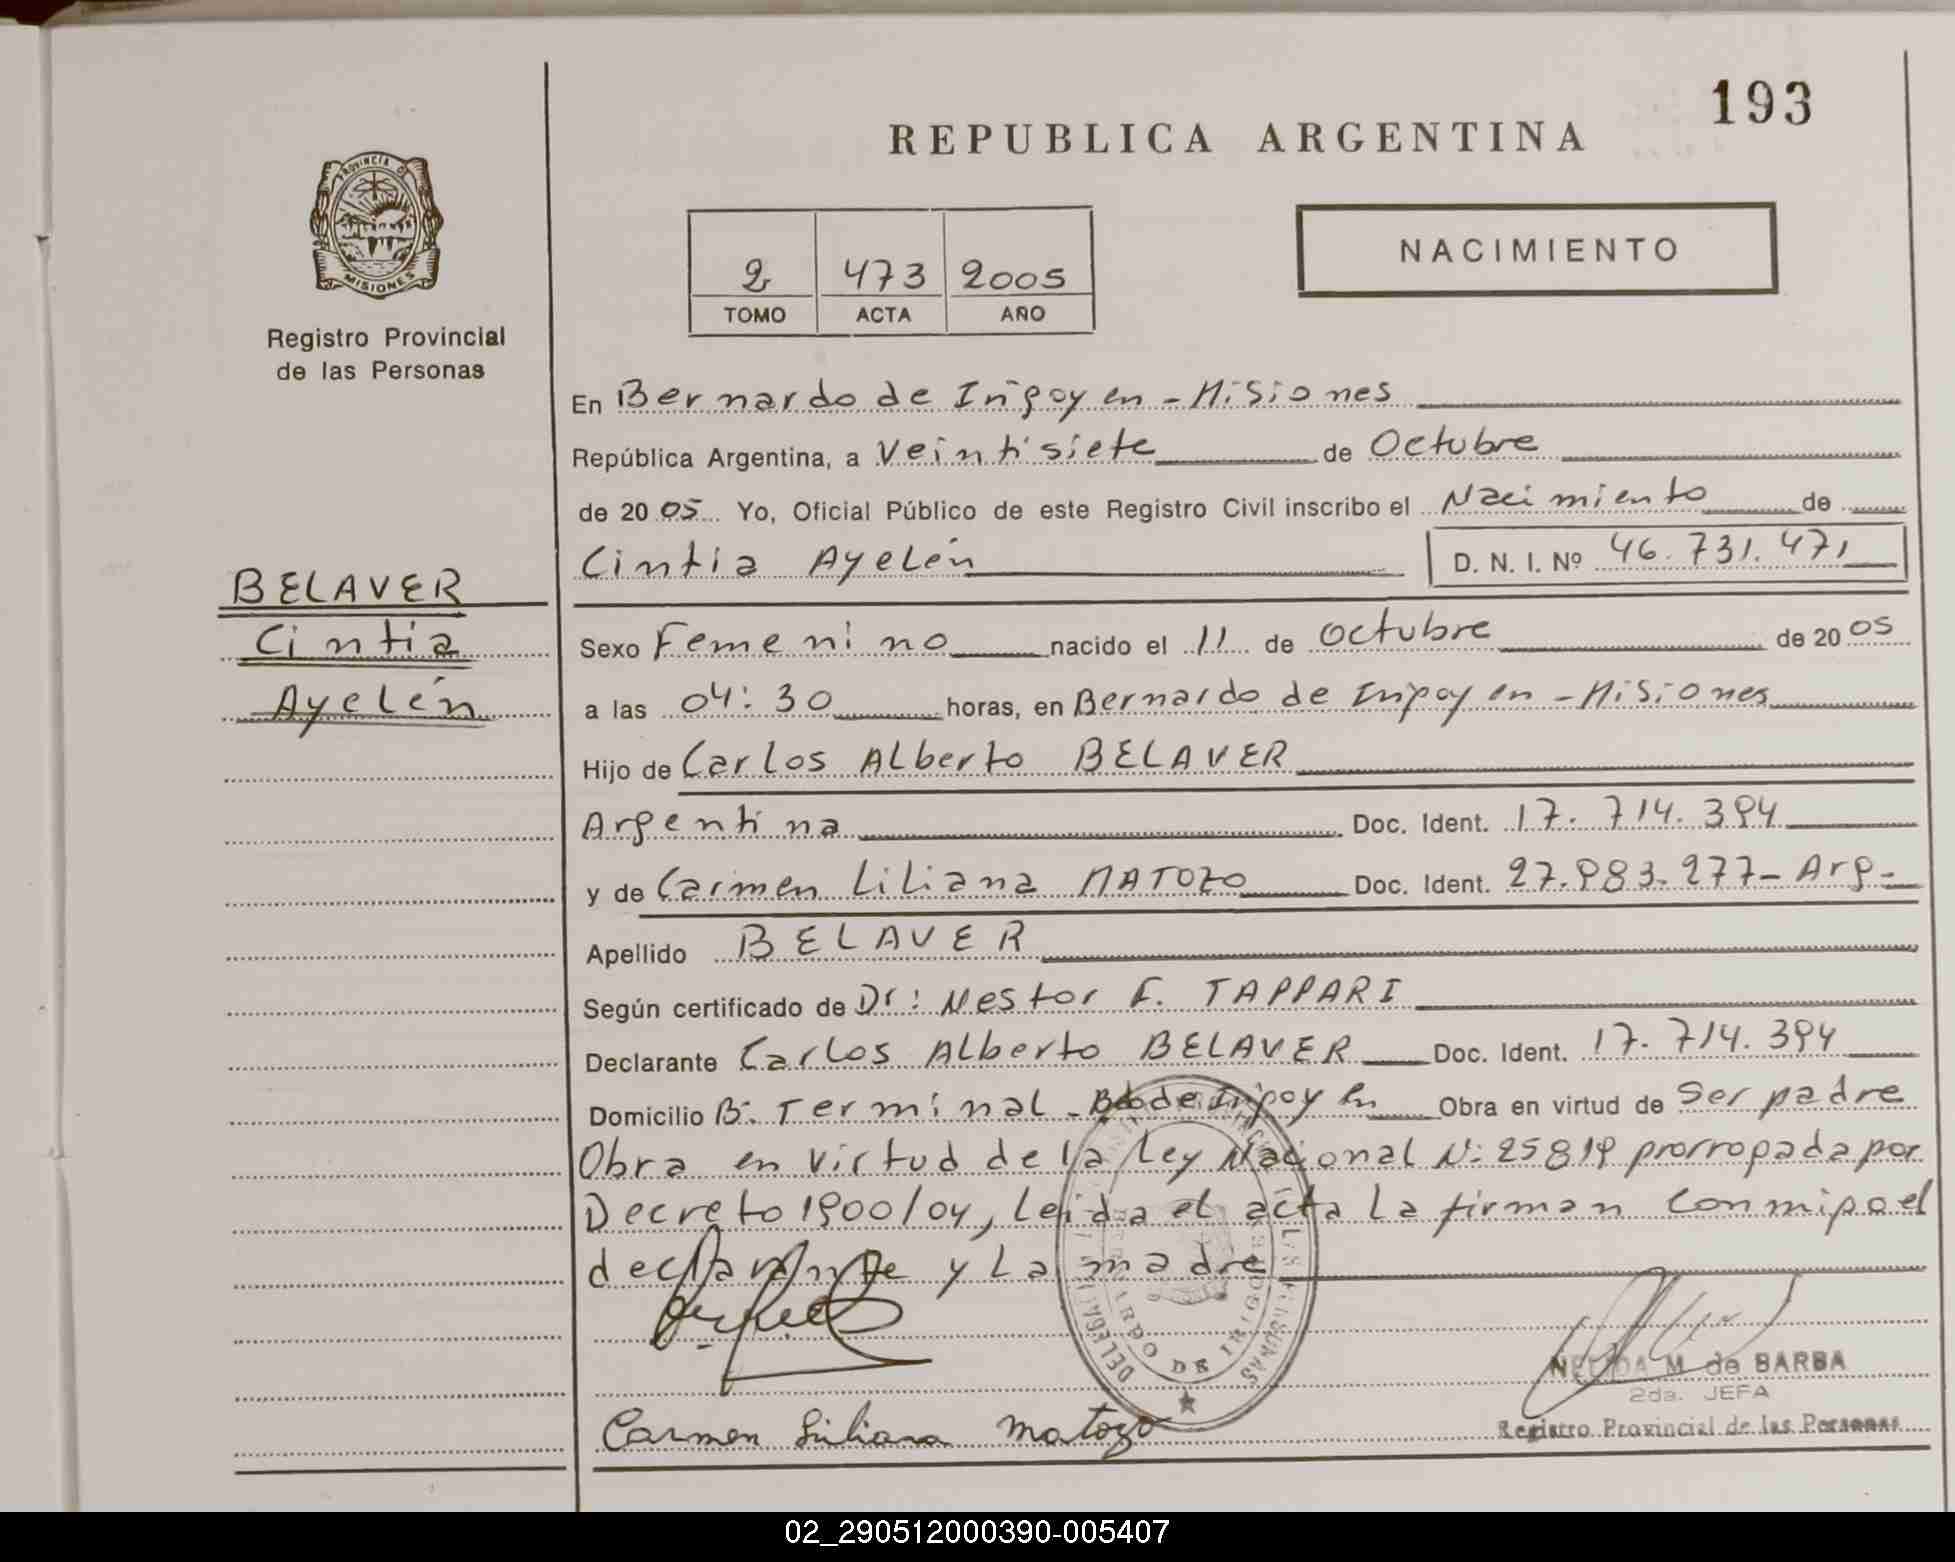 193
REPUBLICA ARGENTINA
PROVINCIA DE
MISIONES
Registro Provincial
de las Personas
2 473 2005
TOMO ACTA AÑO
NACIMIENTO
En Bernardo de Irigoyen - Misiones
República Argentina, a Veintisiete de Octubre
de 2005 Yo, Oficial Público de este Registro Civil inscribo el Nacimiento de
Cintia Ayelén D. N. I. Nº 46.731.471
BELAVER
Cintia
Ayelén
Sexo Femenino nacido el 11 de Octubre de 2005
a las 04:30 horas, en Bernardo de Irigoyen - Misiones
Hijo de Carlos Alberto BELAVER
Argentina Doc. Ident. 17.714.394
y de Carmen Liliana MATOZO Doc. Ident. 27.983.277- Arg-
Apellido BELAVER
Según certificado de Dr: Nestor F. TAPPARI
Declarante Carlos Alberto BELAVER Doc. Ident. 17.714.394
Domicilio B: Terminal - Bdo de Irigoyen Obra en virtud de Ser padre
Obra en virtud de la Ley Nacional N: 25819 prorrogada por
Decreto 1900/04, leida el acta la firman conmigo el
declarante y La madre
DELEGACION
BERNARDO DE IRIGOYEN
NELIDA M. de BARBA
2da. JEFA
Registro Provincial de las Personas
Carmen Liliana Matozo
02_290512000390-005407